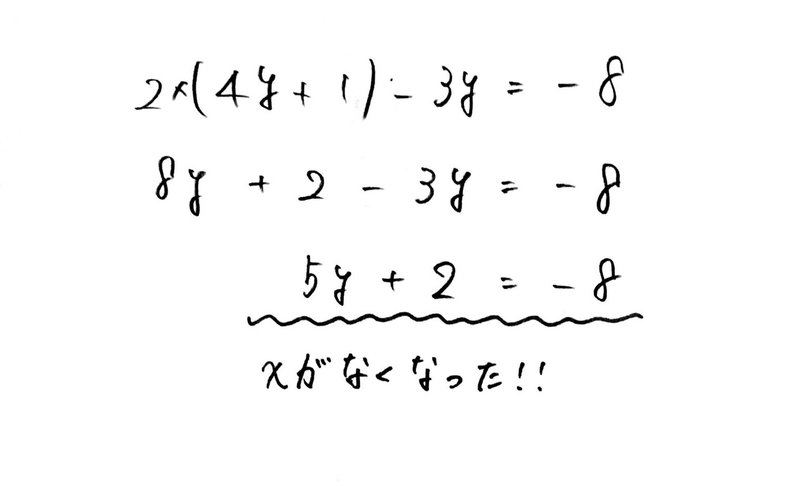 2×(4y+1)-3y=-8
8y+2-3y=-8
5y+2=-8
xがなくなった!!